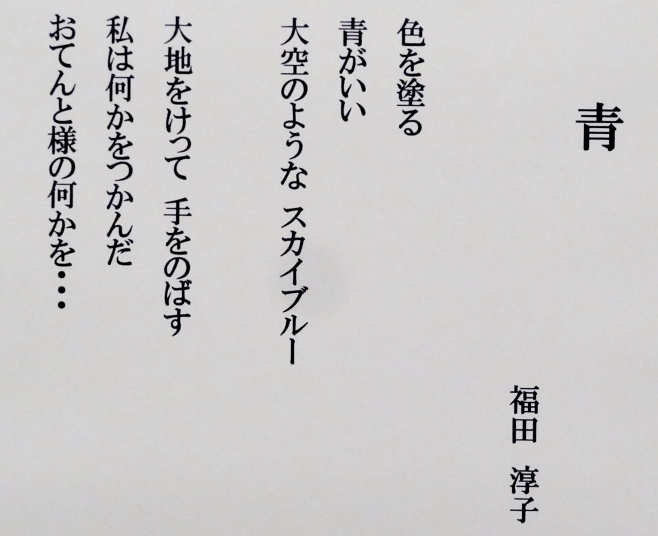 青
福田 淳子
色を塗る
青がいい
大空のような スカイブルー
大地をけって 手をのばす
私は何かをつかんだ
おてんと様の何かを・・・